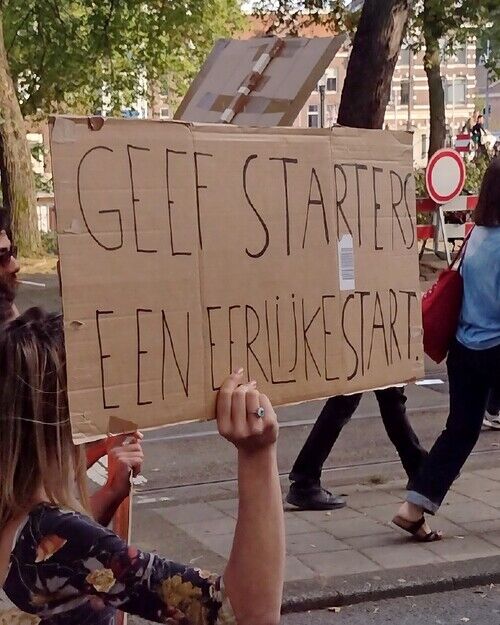 GEEF STARTERS
EEN EERLIJKE START.